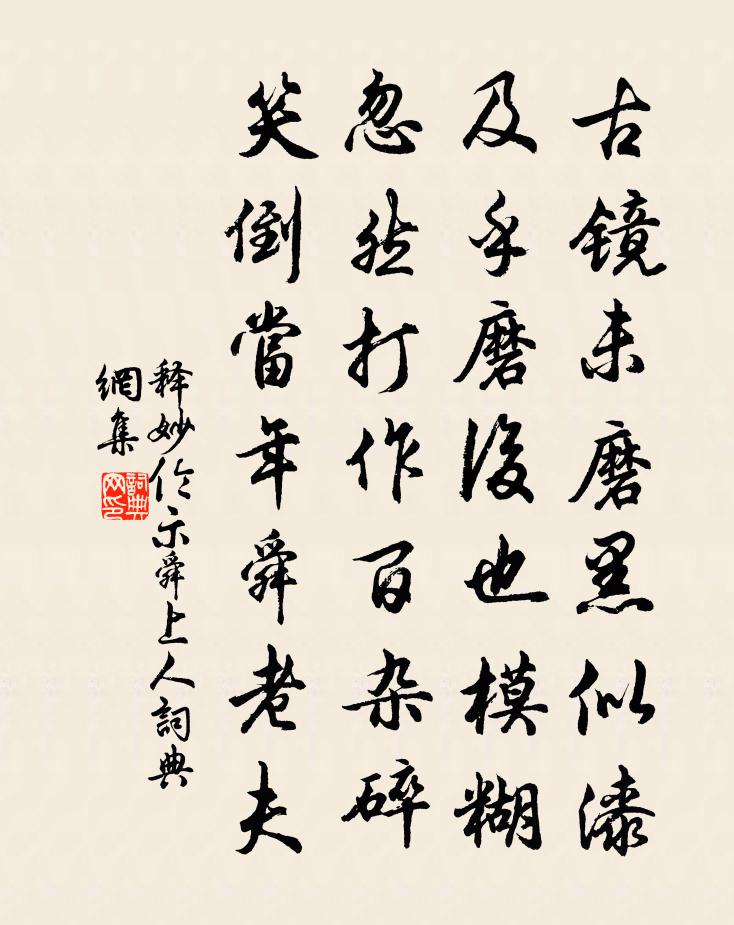 古镜未磨黑似漆
及乎磨後也模糊
忽然打作百杂碎
笑倒當年舜老夫
释妙伦示舜上人詞典
網集
詞典
网印